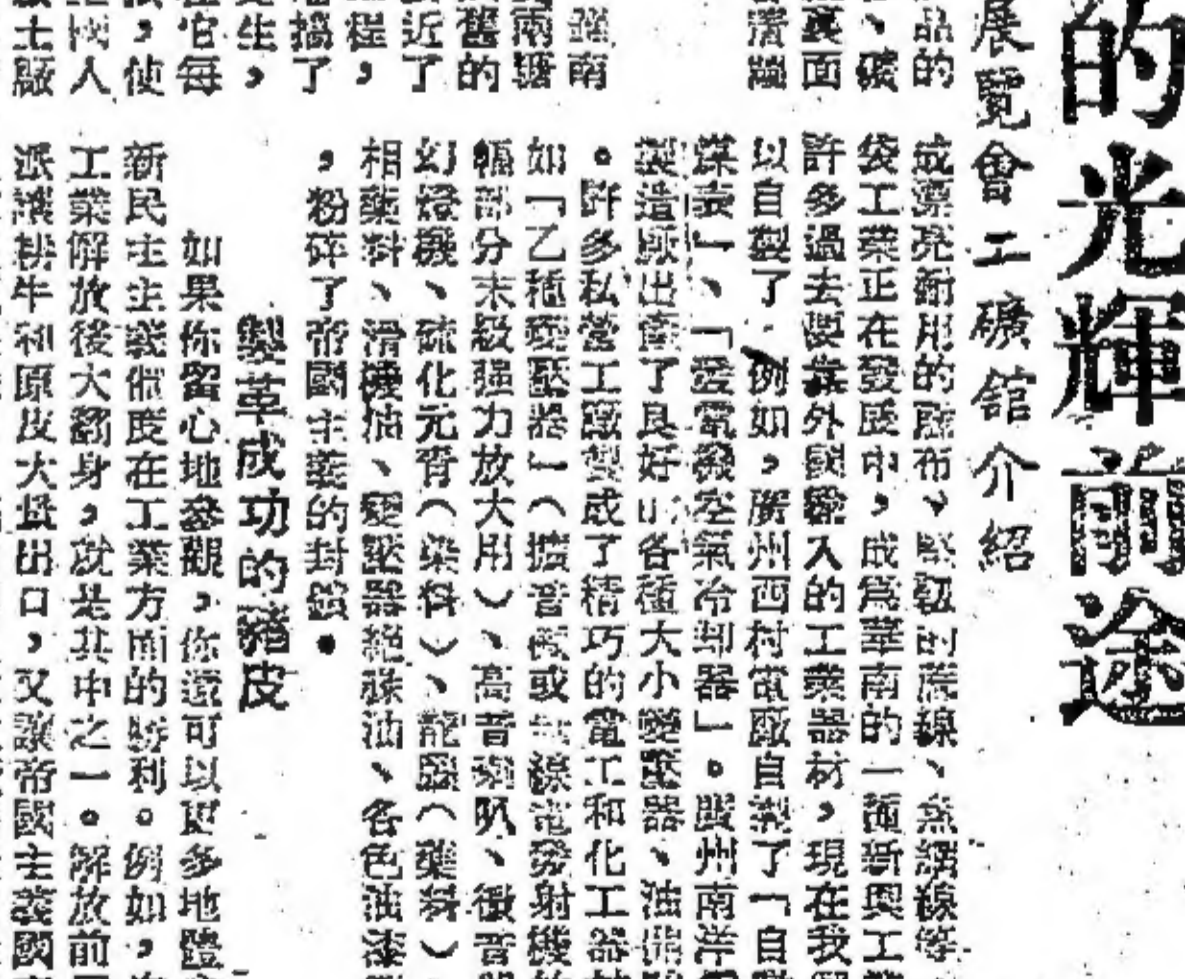 的光輝前途
展覽會工礦館介紹
品的
、礦
裏面
南
兩
舊的
近了
程，
搞了
生，
它每
，使
國人
士敏
成漂亮耐用的麻布、堅韌的蔴線、魚網線等
袋工業正在發展中，成爲華南的一種新興工
許多過去要靠外國輸入的工業器材，現在我
以自製了，例如，廣州西村電廠自製了「自
煤表」、「發電機空氣冷却器」。廣州南洋
製造廠出產了良好的各種大小變壓器、油
。許多私營工廠製成了精巧的電工和化工器
如「乙種變壓器」（擴音機或無線電發射機
幅部分末級强力放大用）、高音喇叭、微音
幻燈機、硫化元青（染料）、（藥料）
相藥料、滑機油、變壓器絕緣油、各色油漆
，粉碎了帝國主義的封鎖。
製革成功的豬皮
如果你留心地參觀，你還可以更多地體
新民主主義制度在工業方面的勝利。例如，
工業解放後大翻身，就是其中之一。解放前
派讓耕牛和原皮大量出口，又讓帝國主義國